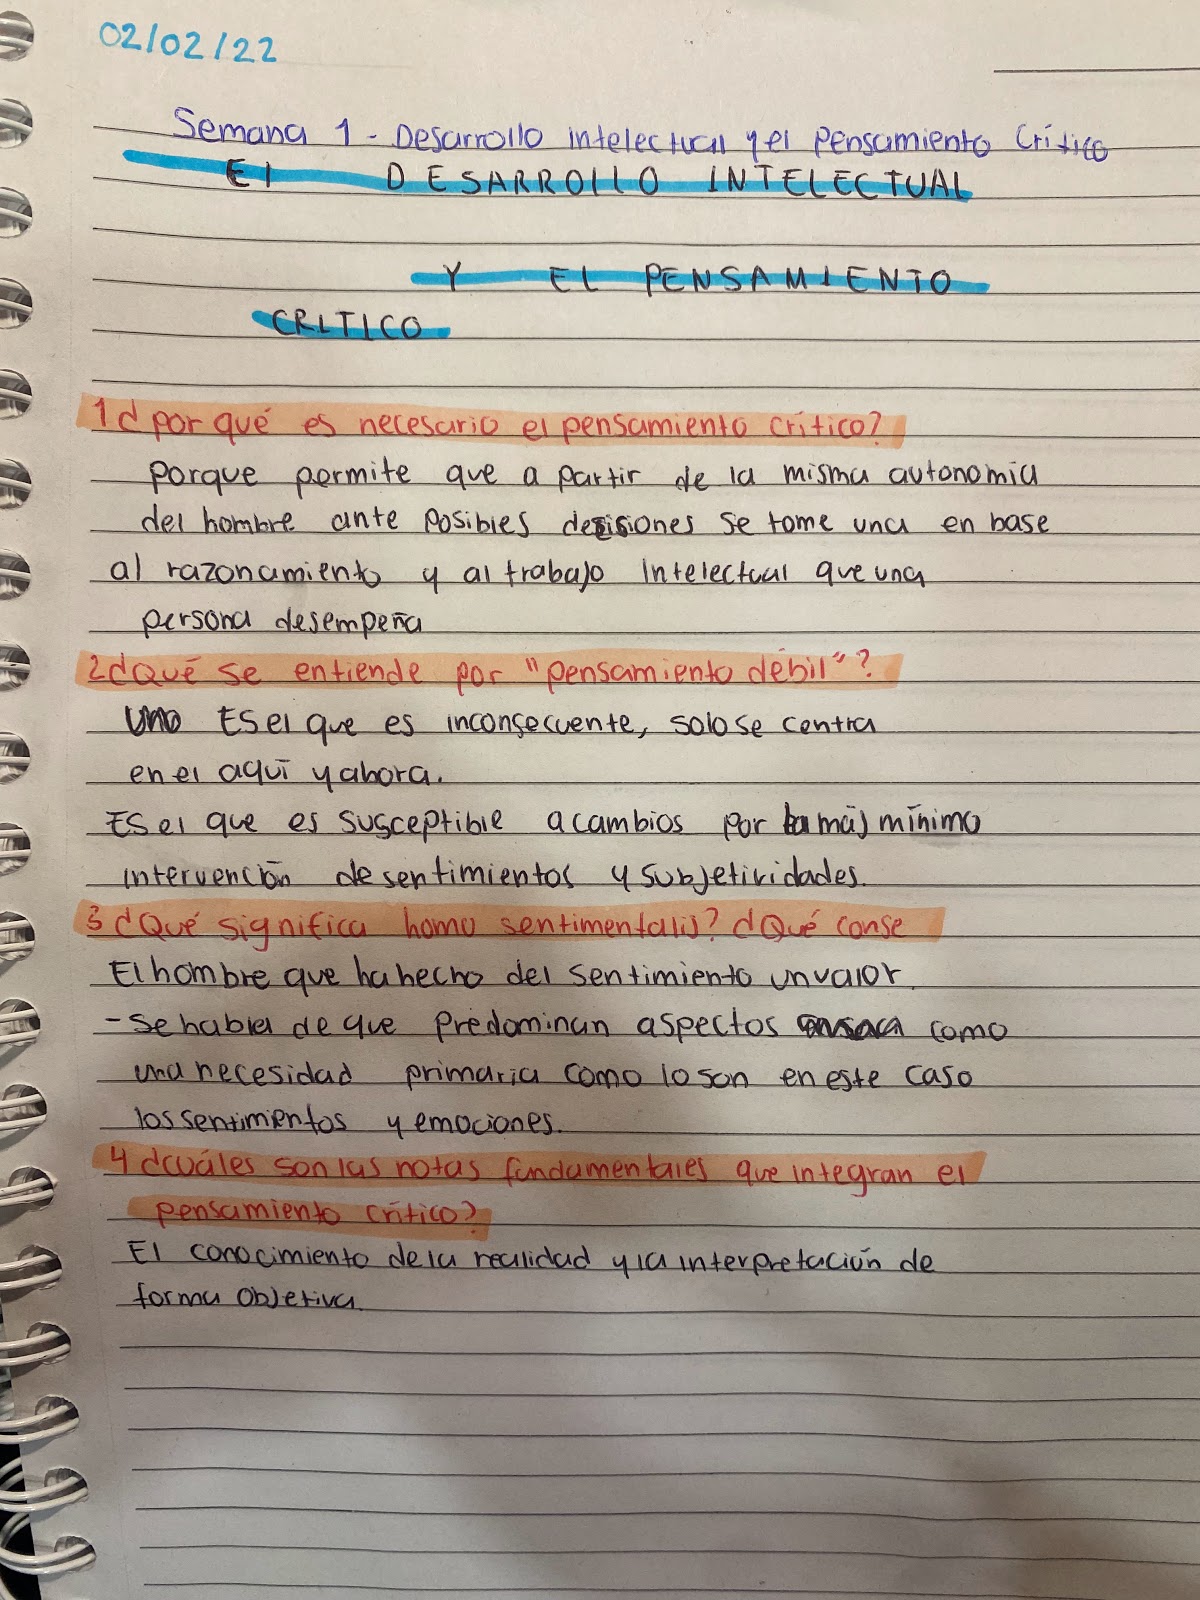 02/02/22
Semana 1 - Desarrollo intelectual y el pensamiento Crítico
El DESARROLLO INTELECTUAL
Y EL PENSAMIENTO
CRITICO
1 ¿por qué es necesario el pensamiento crítico?
Porque permite que a partir de la misma autonomia
del hombre ante posibles desisiones se tome una en base
al razonamiento y al trabajo intelectual que una
persona desempeña
2 ¿Qué se entiende por "pensamiento débil"?
Es el que es inconsecuente, solo se centra
en el aquí y ahora.
Es el que es susceptible a cambios por la más mínimo
intervención de sentimientos y subjetividades.
3 ¿Qué significa homo sentimentalis? ¿Qué conse
El hombre que ha hecho del sentimiento un valor.
- Se habla de que predominan aspectos como
una necesidad primaria como lo son en este caso
los sentimientos y emociones.
4 ¿Cuáles son las notas fundamentales que integran el
pensamiento crítico?
El conocimiento de la realidad y la interpretación de
forma objetiva.